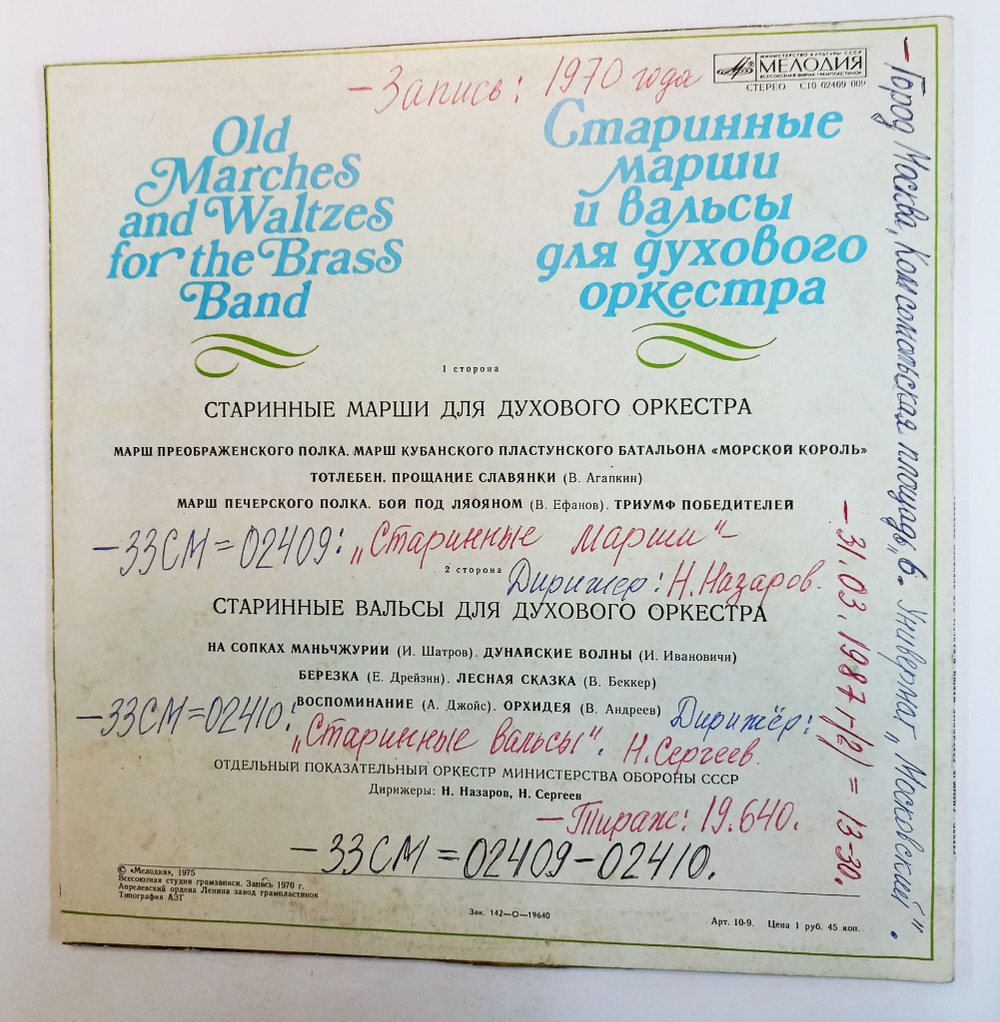 — Запись: 1970 года
МИНИСТЕРСТВО КУЛЬТУРЫ СССР
МЕЛОДИЯ
ВСЕСОЮЗНАЯ ФИРМА ГРАМПЛАСТИНОК
СТЕРЕО С10 02409 009
Old
Marches
and Waltzes
for the Brass
Band
Старинные
марши
и вальсы
для духового
оркестра
1 сторона
СТАРИННЫЕ МАРШИ ДЛЯ ДУХОВОГО ОРКЕСТРА
МАРШ ПРЕОБРАЖЕНСКОГО ПОЛКА. МАРШ КУБАНСКОГО ПЛАСТУНСКОГО БАТАЛЬОНА «МОРСКОЙ КОРОЛЬ»
ТОТЛЕБЕН. ПРОЩАНИЕ СЛАВЯНКИ (В. Агапкин)
МАРШ ПЕЧЕРСКОГО ПОЛКА. БОЙ ПОД ЛЯОЯНОМ (В. Ефанов). ТРИУМФ ПОБЕДИТЕЛЕЙ
— 33СМ = 02409: „Старинные марши" —
2 сторона
Дирижер: Н. Назаров.
СТАРИННЫЕ ВАЛЬСЫ ДЛЯ ДУХОВОГО ОРКЕСТРА
НА СОПКАХ МАНЬЧЖУРИИ (И. Шатров). ДУНАЙСКИЕ ВОЛНЫ (И. Ивановичи)
БЕРЕЗКА (Е. Дрейзин). ЛЕСНАЯ СКАЗКА (В. Беккер)
ВОСПОМИНАНИЕ (А. Джойс). ОРХИДЕЯ (В. Андреев)
— 33СМ = 02410: „Старинные вальсы". Дирижёр: Н. Сергеев.
ОТДЕЛЬНЫЙ ПОКАЗАТЕЛЬНЫЙ ОРКЕСТР МИНИСТЕРСТВА ОБОРОНЫ СССР
Дирижеры: Н. Назаров, Н. Сергеев
— Тираж: 19.640.
— 33СМ = 02409-02410.
© «Мелодия», 1975
Всесоюзная студия грамзаписи. Запись 1970 г.
Апрелевский ордена Ленина завод грампластинок
Типография АЗГ
Зак. 142—О—19640
Арт. 10-9. Цена 1 руб. 45 коп.
— Город Москва, Комсомольская площадь, 6. Универмаг „Московский".
— 31.03.1987-г(2) = 13-30.